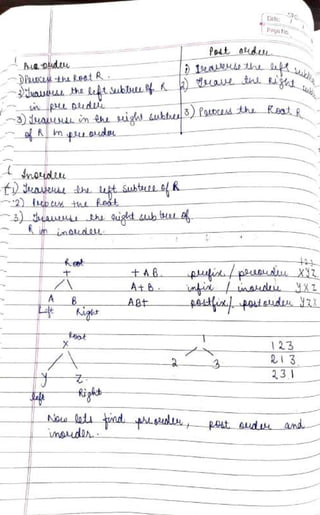 Date
Page No.
Pre order
1) Process the Root R.
2) Traverse the left subtree of R
in pre order
3) Traverse in the right subtree
of R in pre order
Post order
1) Traverse the left subtree
2) the Right
3) Process the Root R
Inorder
1) Traverse the left subtree of R
2) Process the Root
3) Traverse the right sub tree of
R in inorder.
Root
+
A B
Left Right
+ A B. prefix / preorder XYZ
A + B. infix / inorder YXZ
AB+ postfix / postorder YZX
Root
X
Y Z
left Right
1
2 3
1 2 3
2 1 3
2 3 1
Now lets find preorder, post order and
inorder.